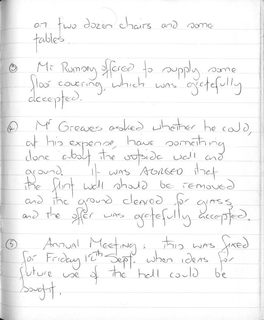 on two dozen chairs and some
tables.
③ Mr Rumsey offered to supply some
floor covering, which was gratefully
accepted.
④ Mr Greaves asked whether he could,
at his expense, have something
done about the outside wall and
ground. It was AGREED that
the flint wall should be removed
and the ground cleared for grass,
and the offer was gratefully accepted.
⑤ Annual Meeting: this was fixed
for Friday 12th Sept, when ideas for
future use of the hall could be
sought.